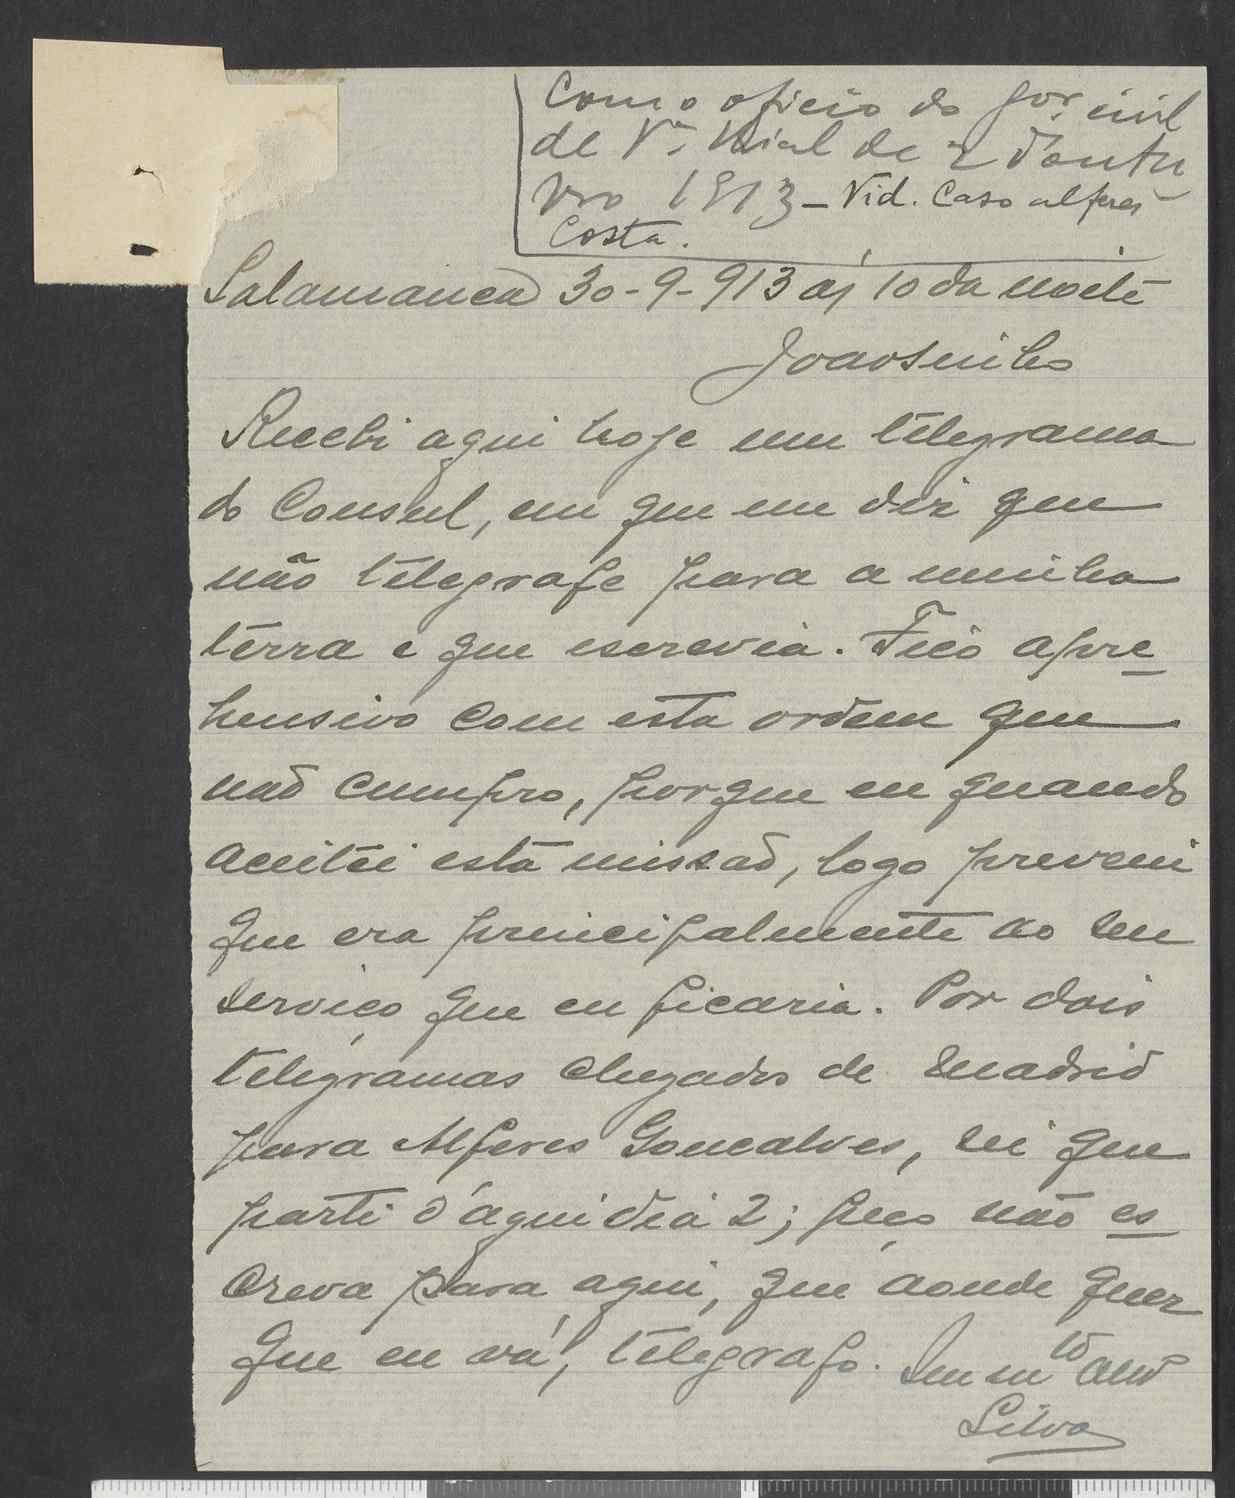 Com o oficio do Gor. civil
de Va. Rial de 2 d'outu
bro 1913 - Vid. Caso alferes
Costa.
Salamanca 30-9-913 ás 10 da noite
Joãosinho
Recebi aqui hoje um telegrama
do Consul, em que me diz que
não telegrafe para a minha
terra e que escrevia. Fico apre
hensivo com esta ordem que
naõ cumpro, porque eu quando
aceitei esta missaõ, logo preveni
que era principalmente ao seu
serviço que eu ficaria. Por dois
telegramas chegados de Madrid
para Alferes Gonçalves, sei que
parti d'aqui dia 2; peço não es
creva para aqui, que aonde quer
que eu vá, telegrafo. Seu mto amo
Silva